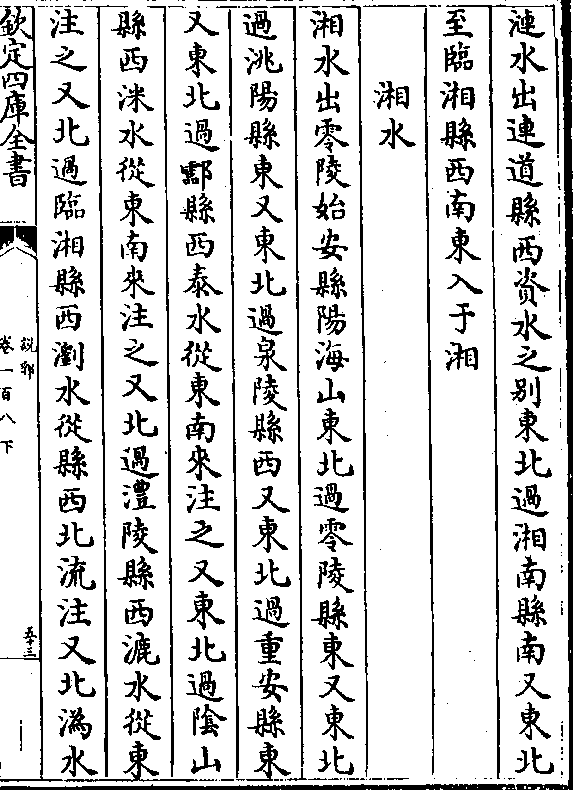 漣水出連道縣西資水之别東北過湘南縣南又東北
至臨湘縣西南東入于湘
湘水
湘水出零陵始安縣陽海山東北過零陵縣東又東北
過洮陽縣東又東北過泉陵縣西又東北過重安縣東
又東北過酃縣西泰水從東南來注之又東北過隂山
縣西洣水從東南來注之又北過澧陵縣西漉水從東
注之又北過臨湘縣西瀏水從縣西北流注又北溈水
欽定四庫全書
説郛
卷一百八下
五十三